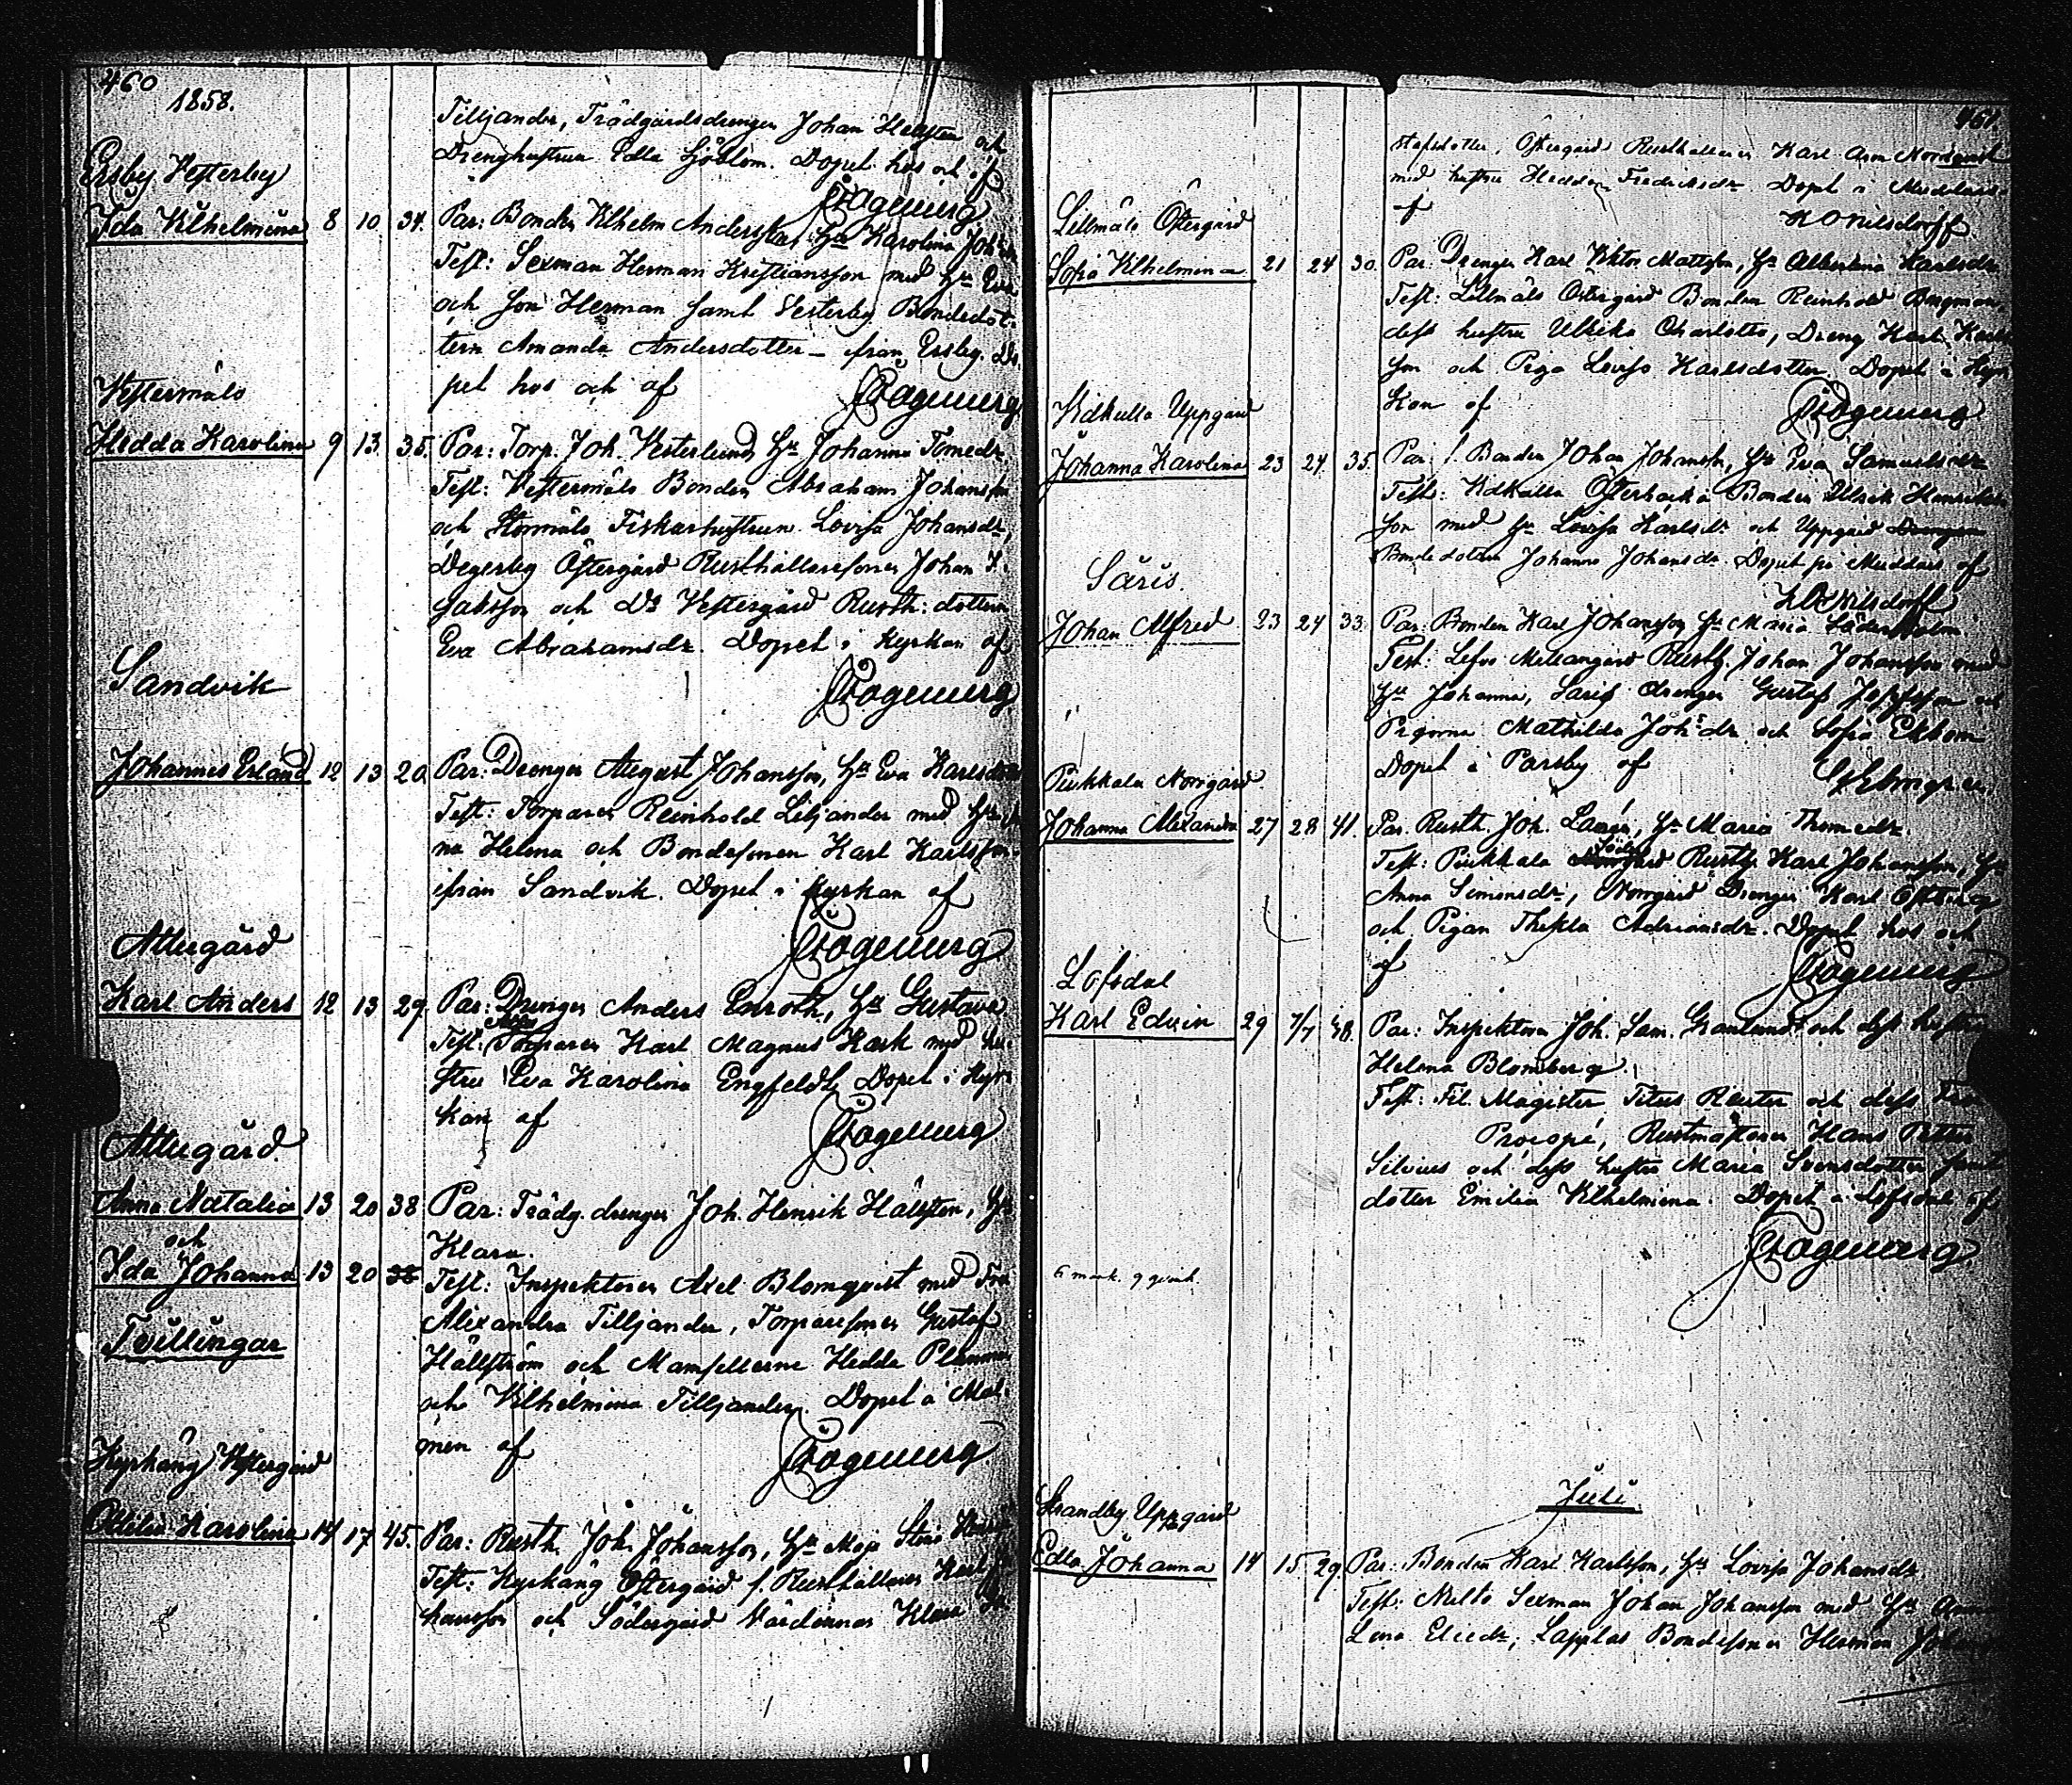 460
1858.
Tilljander, Trädgårdsdrengen Johan Hellsten och
Drenghustrun Edla Sjöblom. Dopet hos och af
Ersby Vesterby
Ida Vilhelmina 8 10 34. Par: Bonden Vilhelm Andersson, Hu Karolina Johsdr
Test: Sexman Herman Kristiansson med Hu Eva
och son Herman samt Vesterby Bondedot-
tern Amanda Andersdotter – ifrån Ersby. Do-
pet hos och af
Vestermåls
Hedda Karolina 9 13. 35. Par: Torp. Joh. Vesterlund, Hu Johanna Tomedr.
Test: Vestermåls Bonden Abraham Johansson
och Stormåls Fiskarhustrun Lovisa Johansdr,
Degerby Östergård Rusthållaresonen Johan I-
saksson och Do Vestergård Rusth: dottern
Eva Abrahamsdr. Dopet i Kyrkan af
Sandvik
Johannes Erland 12 13 20. Par: Drengen August Johansson, Hu Eva Karlsdotter
Test: Torparen Reinhold Liljander med Hu
na Helena och Bondesonen Karl Karlsson
ifrån Sandvik. Dopet i Kyrkan af
Attergård
Karl Anders 12 13 29. Par: Drengen Anders Enroth, Hu Gustava
Test: Torparen Karl Magnus Kask med hu-
stru Eva Karolina Engfeldt. Dopet i Kyr-
kan af
Attergård.
Anna Natalia 13 20 38 Par: Trädg. drengen Joh. Henrik Hällsten, Hu
och Klara.
Ida Johanna 13 20 38 Test: Inspektoren Axel Blomqvist med Fru
Tvillingar
Alexandra Tilljander, Torparesonen Gustaf
Hällström och Mamsellerne Hedda
och Vilhelmina Tilljander. Dopet å Mal-
men af
Kyrkäng Vestergård
Otilia Karolina 14 17 45. Par: Rusth. Joh. Johansson, Hu Maja Stina
Test: Kyrkäng Östergård f. Rusthållaren Karl Jo-
hansson och Södergård Värdinnan Klara
461.
Östergård Rusthållaren Karl Aron Nordqvist
med hustru Hedda Fredriksdr. Dopet i
af
Lillmåls Östergård
Sofia Vilhelmina 21 24 30. Par: Drengen Karl Viktor Mattsson, Hu Albertina Karlsdr
Test: Lillmåls Östergård Bonden Reinhold Bergman,
dess hustru Ulrika Charlotta, Dreng Karl Karls-
son och Piga Lovisa Karlsdotter. Dopet i Kyr-
kan af
Kdkulla Uppgård
Johanna Karolina 23 24 35. Par: f. Bonden Johan Johansson, Hu Eva Samuelsdr
Test: Kdkulla Österbacka Bonden Ulrik Henriks-
son med Hu Lovisa Karlsdr och Uppgård Drengen
Bondedottern Johanna Johansdr. Dopet på Muddais af
Säris.
Johan Alfred 23 24 33. Par: Bonden Karl Johansson, Hu Maria Söderholm.
Test: Lefvo Mellangård Rusth. Johan Johansson med
Hu Johanna, Säris drengen Gustaf Jossefsson och
Pigorna Mathilda Johsdr och Sofia Ekbom
Dopet i Parsby af
Piukkala Norrgård
Johanna Alexandra 27 28 41. Par. Rusth. Joh. Laurén, Hu Maria Thomedr.
Test: Piukkala Södergård Rusth. Karl Johansson, Hu
Anna Simonsdr, Norrgård Drengen Karl Östberg
och Pigan Thekla Adriansdr. Dopet hos och
af
Lofsdal
Karl Edvin 29 7/7 48. Par: Inspektoren Joh. Sam. Granlund och dess hustru
Helena Blomberg.
Test: Fil. Magister Titus Reuter och dess Fru
Procopé, Rustmästaren Hans Petter
Silvius och dess hustru Maria Svensdotter samt
dotter Emilia Vilhelmina. Dopet å Lofsdal af
6 mank. 9 qvink.
Juli.
Strandby Uppgård
Edla Johanna 14 15 29. Par: Bonden Karl Karlsson, Hu Lovisa Johansdr
Test: Nulto Sexman Johan Johansson med Hu Anna
Lena Eliedr, Lapplas Bondesonen Herman